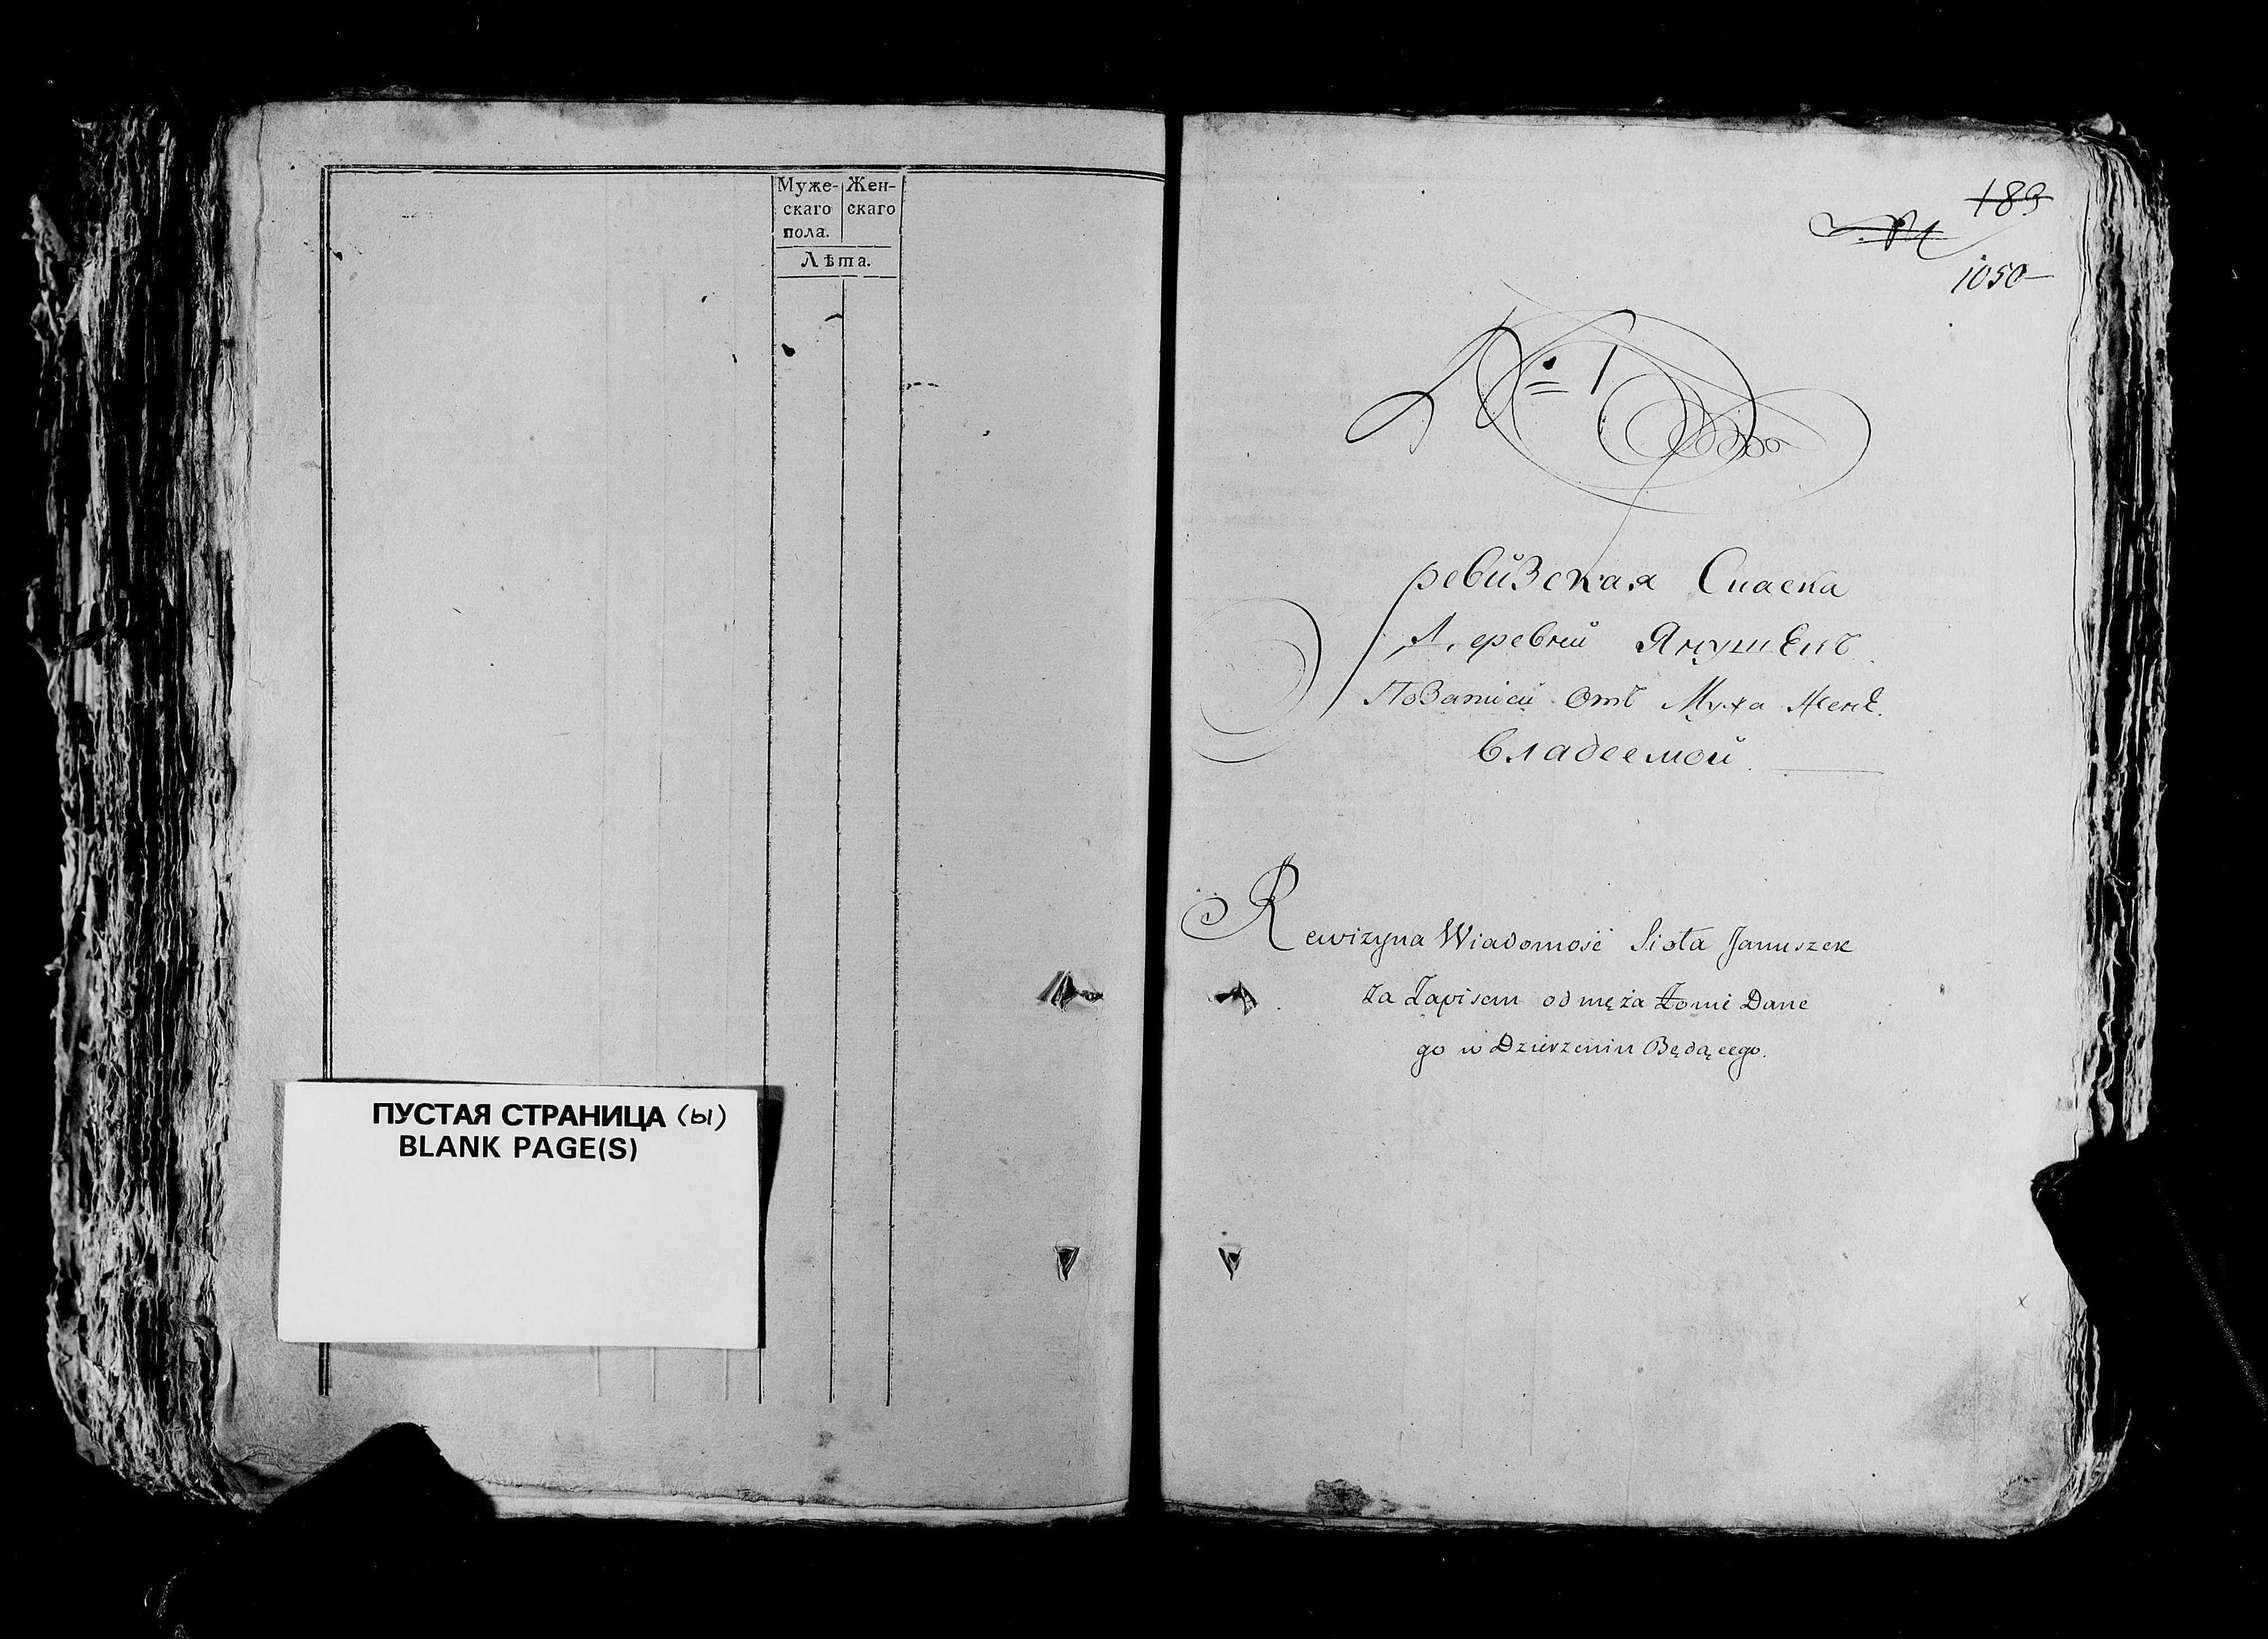 Муже-
скаго
пола.
Жен-
скаго
Лѣта.
ПУСТАЯ СТРАНИЦА (ы)
BLANK PAGE(S)
183
1050
№ 1
ревизская Сказка
Деревни Янушекъ
По Записи отъ Мужа Женѣ
владеемой
Rewizyna Wiadomość Sioła Januszek
Za Zapisem od męża Żonie Dane
go w Dzierzeniu Będącego.